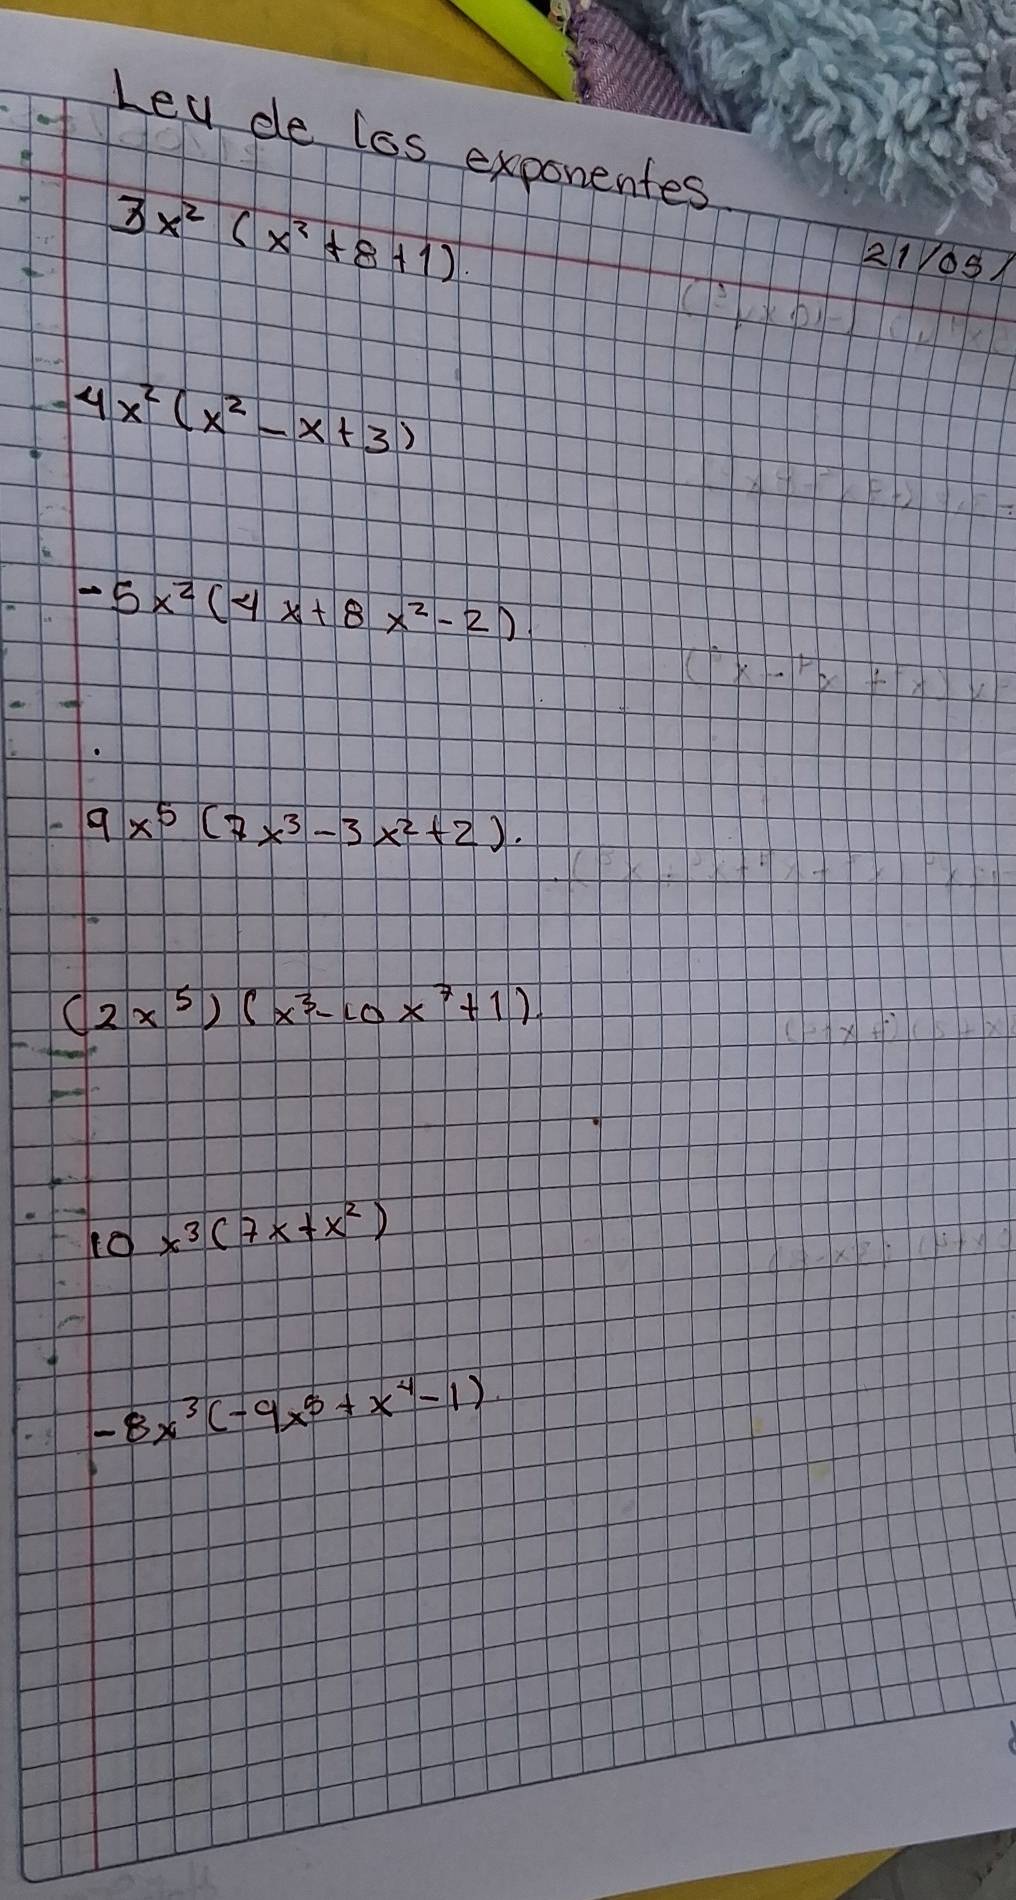 Ley de los exponentes
21/05/
3x² (x³ + 8 + 1).
4x² (x² - x + 3)
-5x² (4x + 8x² - 2).
9x⁵ (7x³ - 3x² + 2).
(2x⁵) (x³ - 10x⁷ + 1).
10x³ (7x + x²)
-8x³ (-9x⁵ + x⁴ - 1).